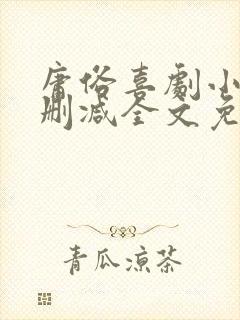 庸俗喜劇小
刪減全文免
青瓜凉茶